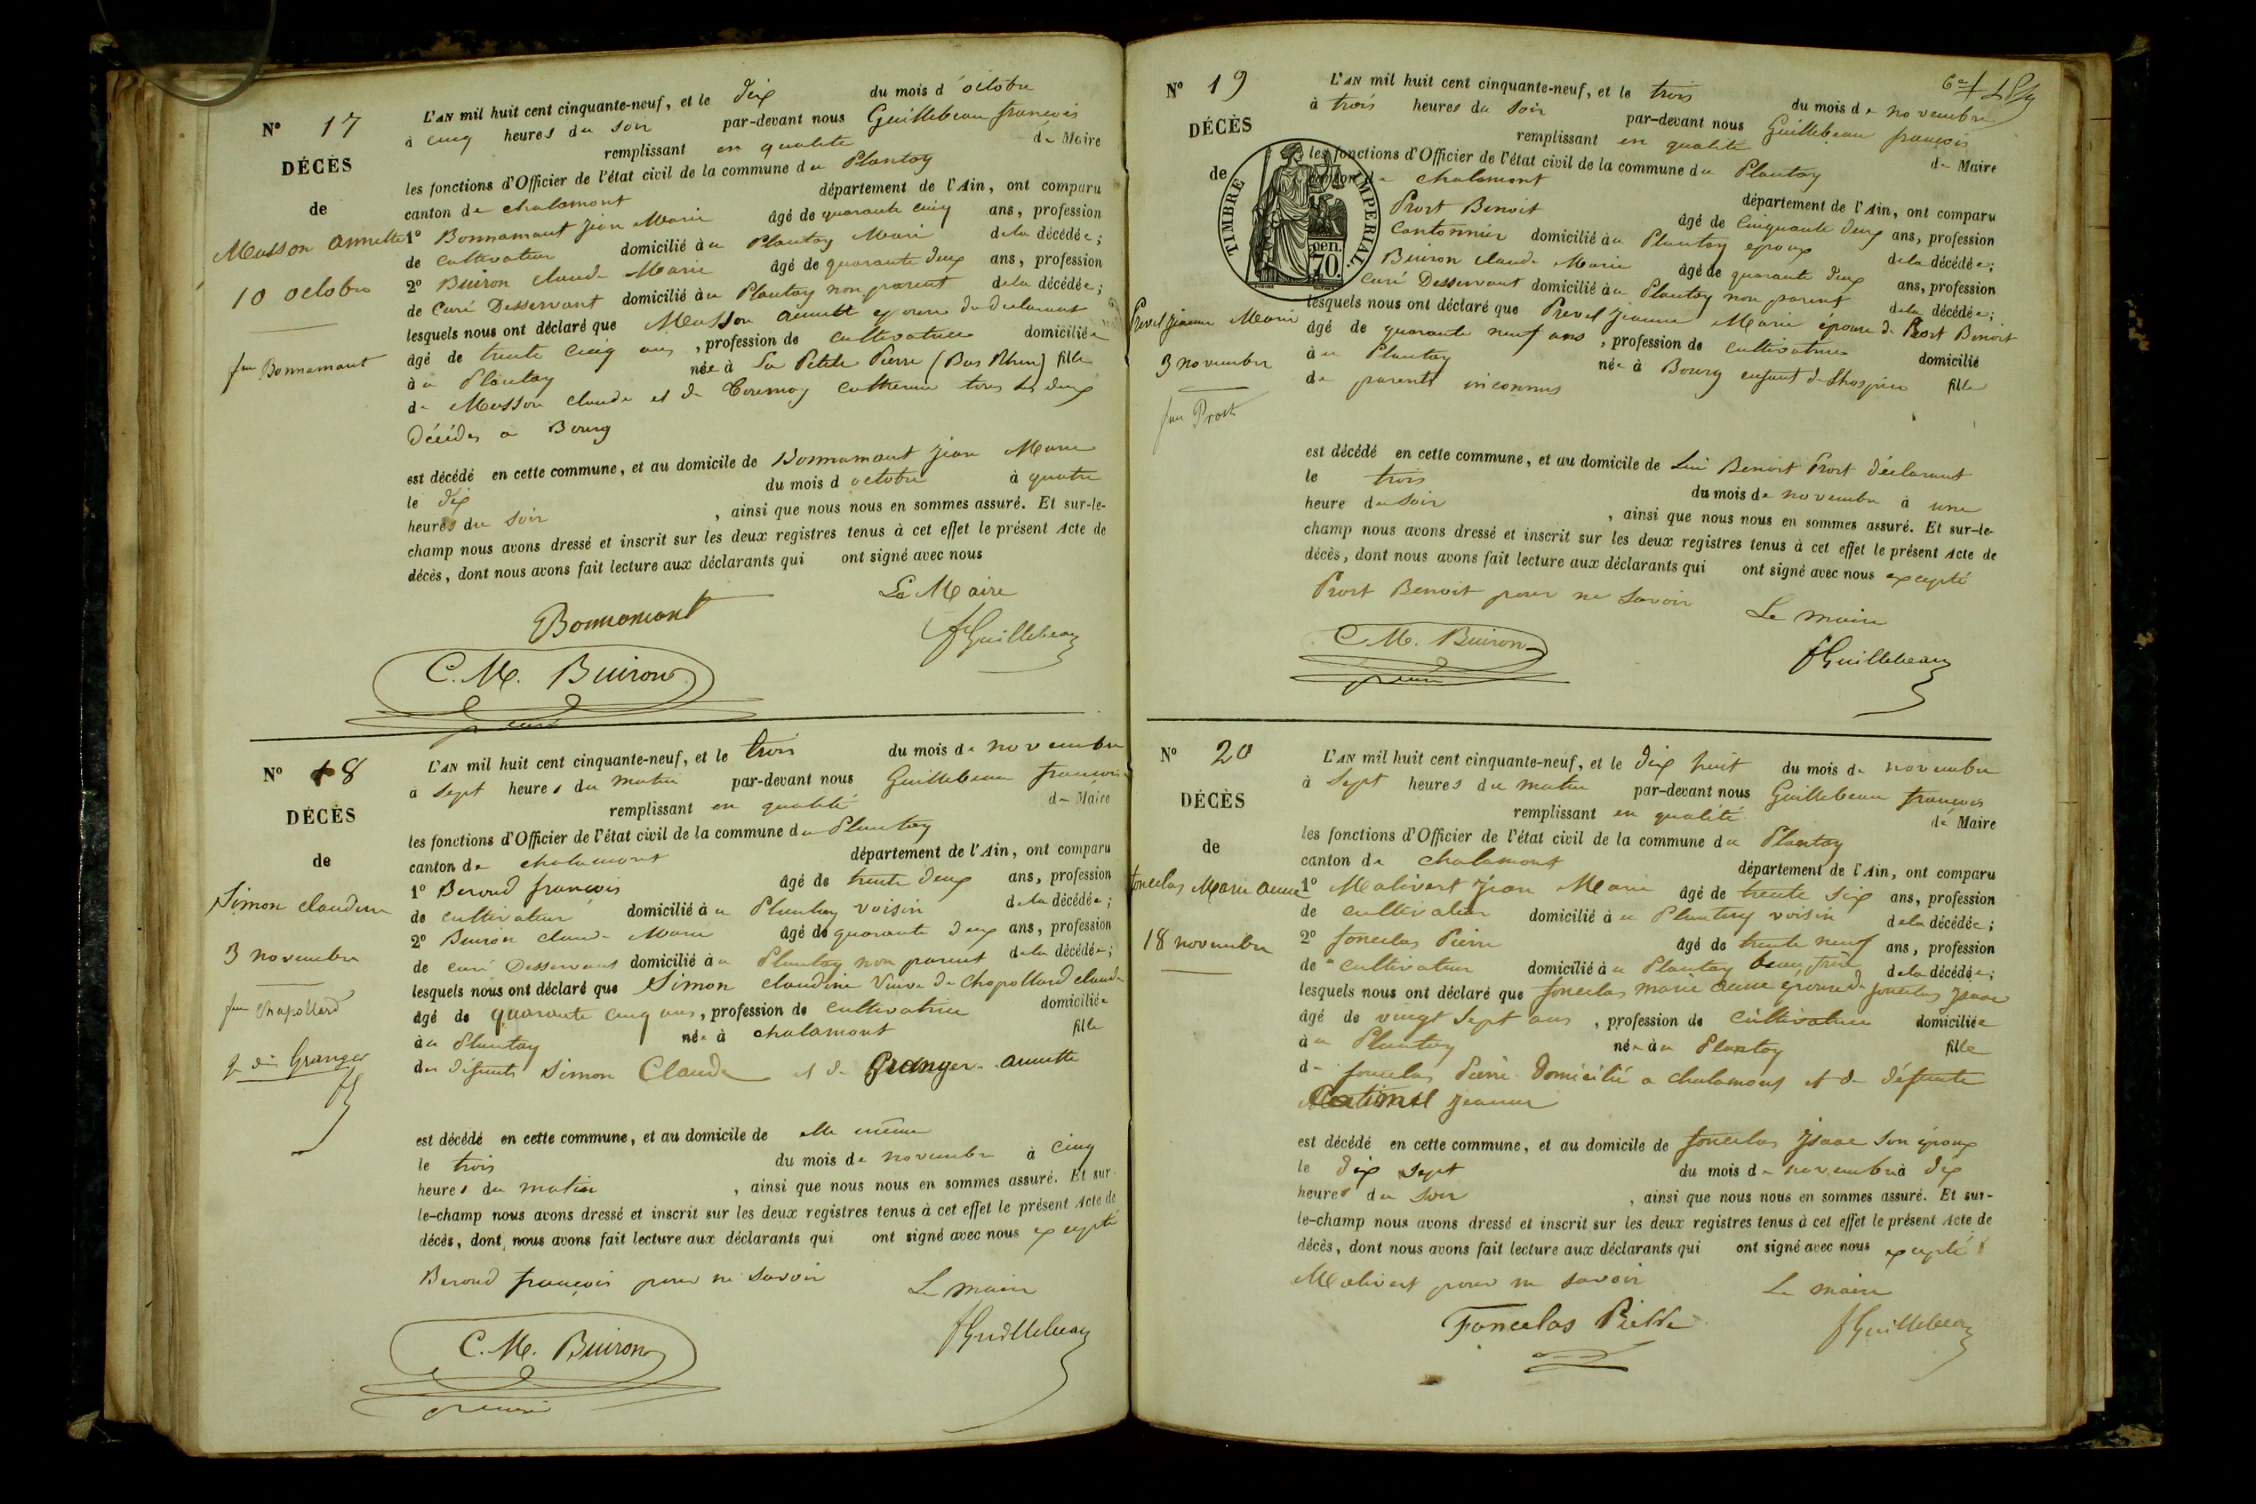 N° 17
DÉCÈS
de
Musson annette
10 octobre
fme Bonnamant
L'AN mil huit cent cinquante-neuf, et le dix du mois d'octobre
à cinq heures du soir par-devant nous Guillebeau françois
remplissant en qualité de Maire
les fonctions d'Officier de l'état civil de la commune du Plantay
canton de chalamont département de l'Ain, ont comparu
1° Bonnamant jean Marie âgé de quarante cinq ans, profession
de cultivateur domicilié au Plantay Mari de la décédée;
2° Buiron claude Marie âgé de quarante deux ans, profession
de Curé Desservant domicilié au Plantay non parent de la décédée;
lesquels nous ont déclaré que Musson annette epouse du declarant
âgé de trente cinq ans, profession de cultivatrice domiciliée
à u Plantay née à La Petite Pierre (Bas Rhin) fille
de Musson claude et de catherine tous les deux
Décédés a Bourg
est décédé en cette commune, et au domicile de Bonnamant jean Marie
le dix du mois d octobre à quatre
heures du soir, ainsi que nous nous en sommes assuré. Et sur-le-
champ nous avons dressé et inscrit sur les deux registres tenus à cet effet le présent Acte de
décès, dont nous avons fait lecture aux déclarants qui ont signé avec nous
Le Maire
Bonnamant
fGuillebeau
C. M. Buiron
N° 18
DÉCÈS
de
Simon claudine
3 novembre
fme Chapollard
Granger
L'AN mil huit cent cinquante-neuf, et le trois du mois de novembre
à sept heures du matin par-devant nous Guillebeau françois
remplissant en qualité de Maire
les fonctions d'Officier de l'état civil de la commune du Plantay
canton de chalamont département de l'Ain, ont comparu
1° Beroud françois âgé de trente deux ans, profession
de cultivateur domicilié à u Plantay voisin de la décédée;
2° Buiron claude Marie âgé de quarante deux ans, profession
de curé Desservant domicilié à u Plantay non parent de la décédée;
lesquels nous ont déclaré que Simon claudine Veuve de Chapollard claude
âgé de quarante cinq ans, profession de cultivatrice domiciliée
à u Plantay née à chalamont fille
des défunts Simon Claude et de Granger annette
est décédé en cette commune, et au domicile de elle même
le trois du mois de novembre à cinq
heures du matin, ainsi que nous nous en sommes assuré. Et sur-
le-champ nous avons dressé et inscrit sur les deux registres tenus à cet effet le présent Acte de
décès, dont nous avons fait lecture aux déclarants qui ont signé avec nous excepté
Beroud françois pour ne savoir
Le maire
C. M. Buiron
fGuillebeau
N° 19
DÉCÈS
de
TIMBRE IMPERIAL.
cen. 70.
Prevel jeanne Marie
3 novembre
fme Prost
L'AN mil huit cent cinquante-neuf, et le trois du mois de novembre
à trois heures du soir par-devant nous Guillebeau françois
remplissant en qualité de Maire
les fonctions d'Officier de l'état civil de la commune du Plantay
canton de chalamont département de l'Ain, ont comparu
Prost Benoit âgé de Cinquante deux ans, profession
Cantonnier domicilié à u Plantay epoux de la décédée;
Buiron claude Marie âgé de quarante deux ans, profession
Curé Desservant domicilié à u Plantay non parent de la décédée;
lesquels nous ont déclaré que Prevel jeanne Marie épouse de Prost Benoit
âgé de quarante neuf ans, profession de cultivatrice domicilié
à u Plantay née à Bourg enfant de Lhospice fille
de parents inconnus
est décédé en cette commune, et au domicile de Lui Benoit Prost déclarant
le trois du mois de novembre à une
heure du soir, ainsi que nous nous en sommes assuré. Et sur-le-
champ nous avons dressé et inscrit sur les deux registres tenus à cet effet le présent Acte de
décès, dont nous avons fait lecture aux déclarants qui ont signé avec nous excepté
Prost Benoit pour ne savoir
Le maire
C. M. Buiron
fGuillebeau
N° 20
DÉCÈS
de
foncelas Marie anne
18 novembre
L'AN mil huit cent cinquante-neuf, et le dix huit du mois de novembre
à sept heures du matin par-devant nous Guillebeau françois
remplissant en qualité de Maire
les fonctions d'Officier de l'état civil de la commune du Plantay
canton de chalamont département de l'Ain, ont comparu
1° Malivert jean Marie âgé de trente six ans, profession
de cultivateur domicilié à u Plantay voisin de la décédée;
2° foncelas Pierre âgé de trente neuf ans, profession
de cultivateur domicilié à u Plantay beau frère de la décédée;
lesquels nous ont déclaré que foncelas marie anne epouse de foncelas jsaac
âgé de vingt sept ans, profession de cultivatrice domiciliée
à u Plantay née à u Plantay fille
de foncelas Pierre Domicilié a chalamont et de défunte
jeanne
est décédé en cette commune, et au domicile de foncelas jsaac son époux
le dix sept du mois de novembre à dix
heures du soir, ainsi que nous nous en sommes assuré. Et sur-
le-champ nous avons dressé et inscrit sur les deux registres tenus à cet effet le présent Acte de
décès, dont nous avons fait lecture aux déclarants qui ont signé avec nous excepté
Malivert pour ne savoir
Le maire
Foncelas Pierre
fGuillebeau